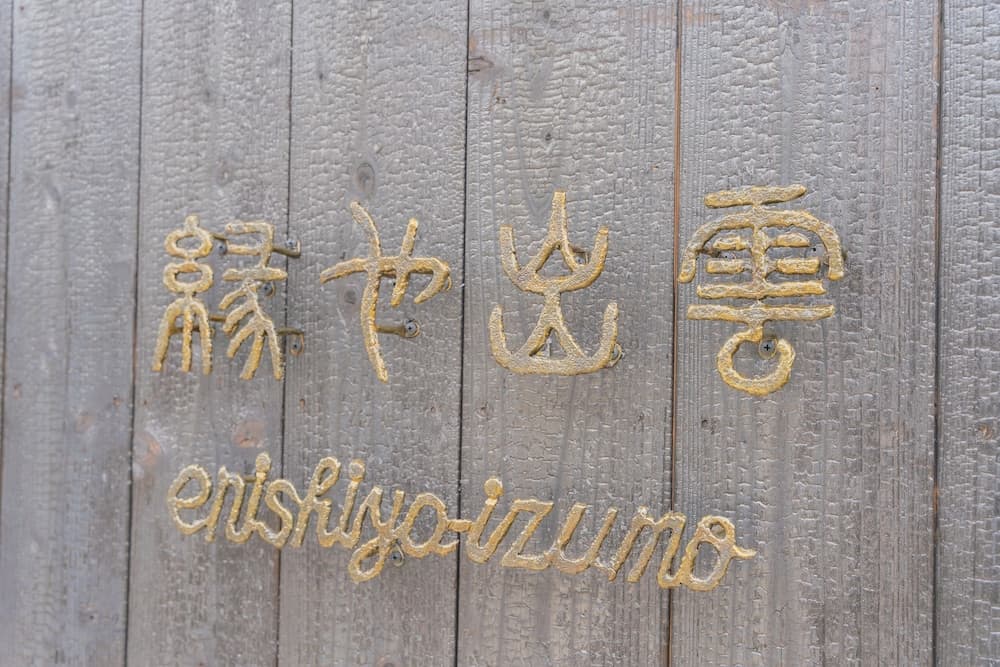 縁也出雲
enishiyo-izumo